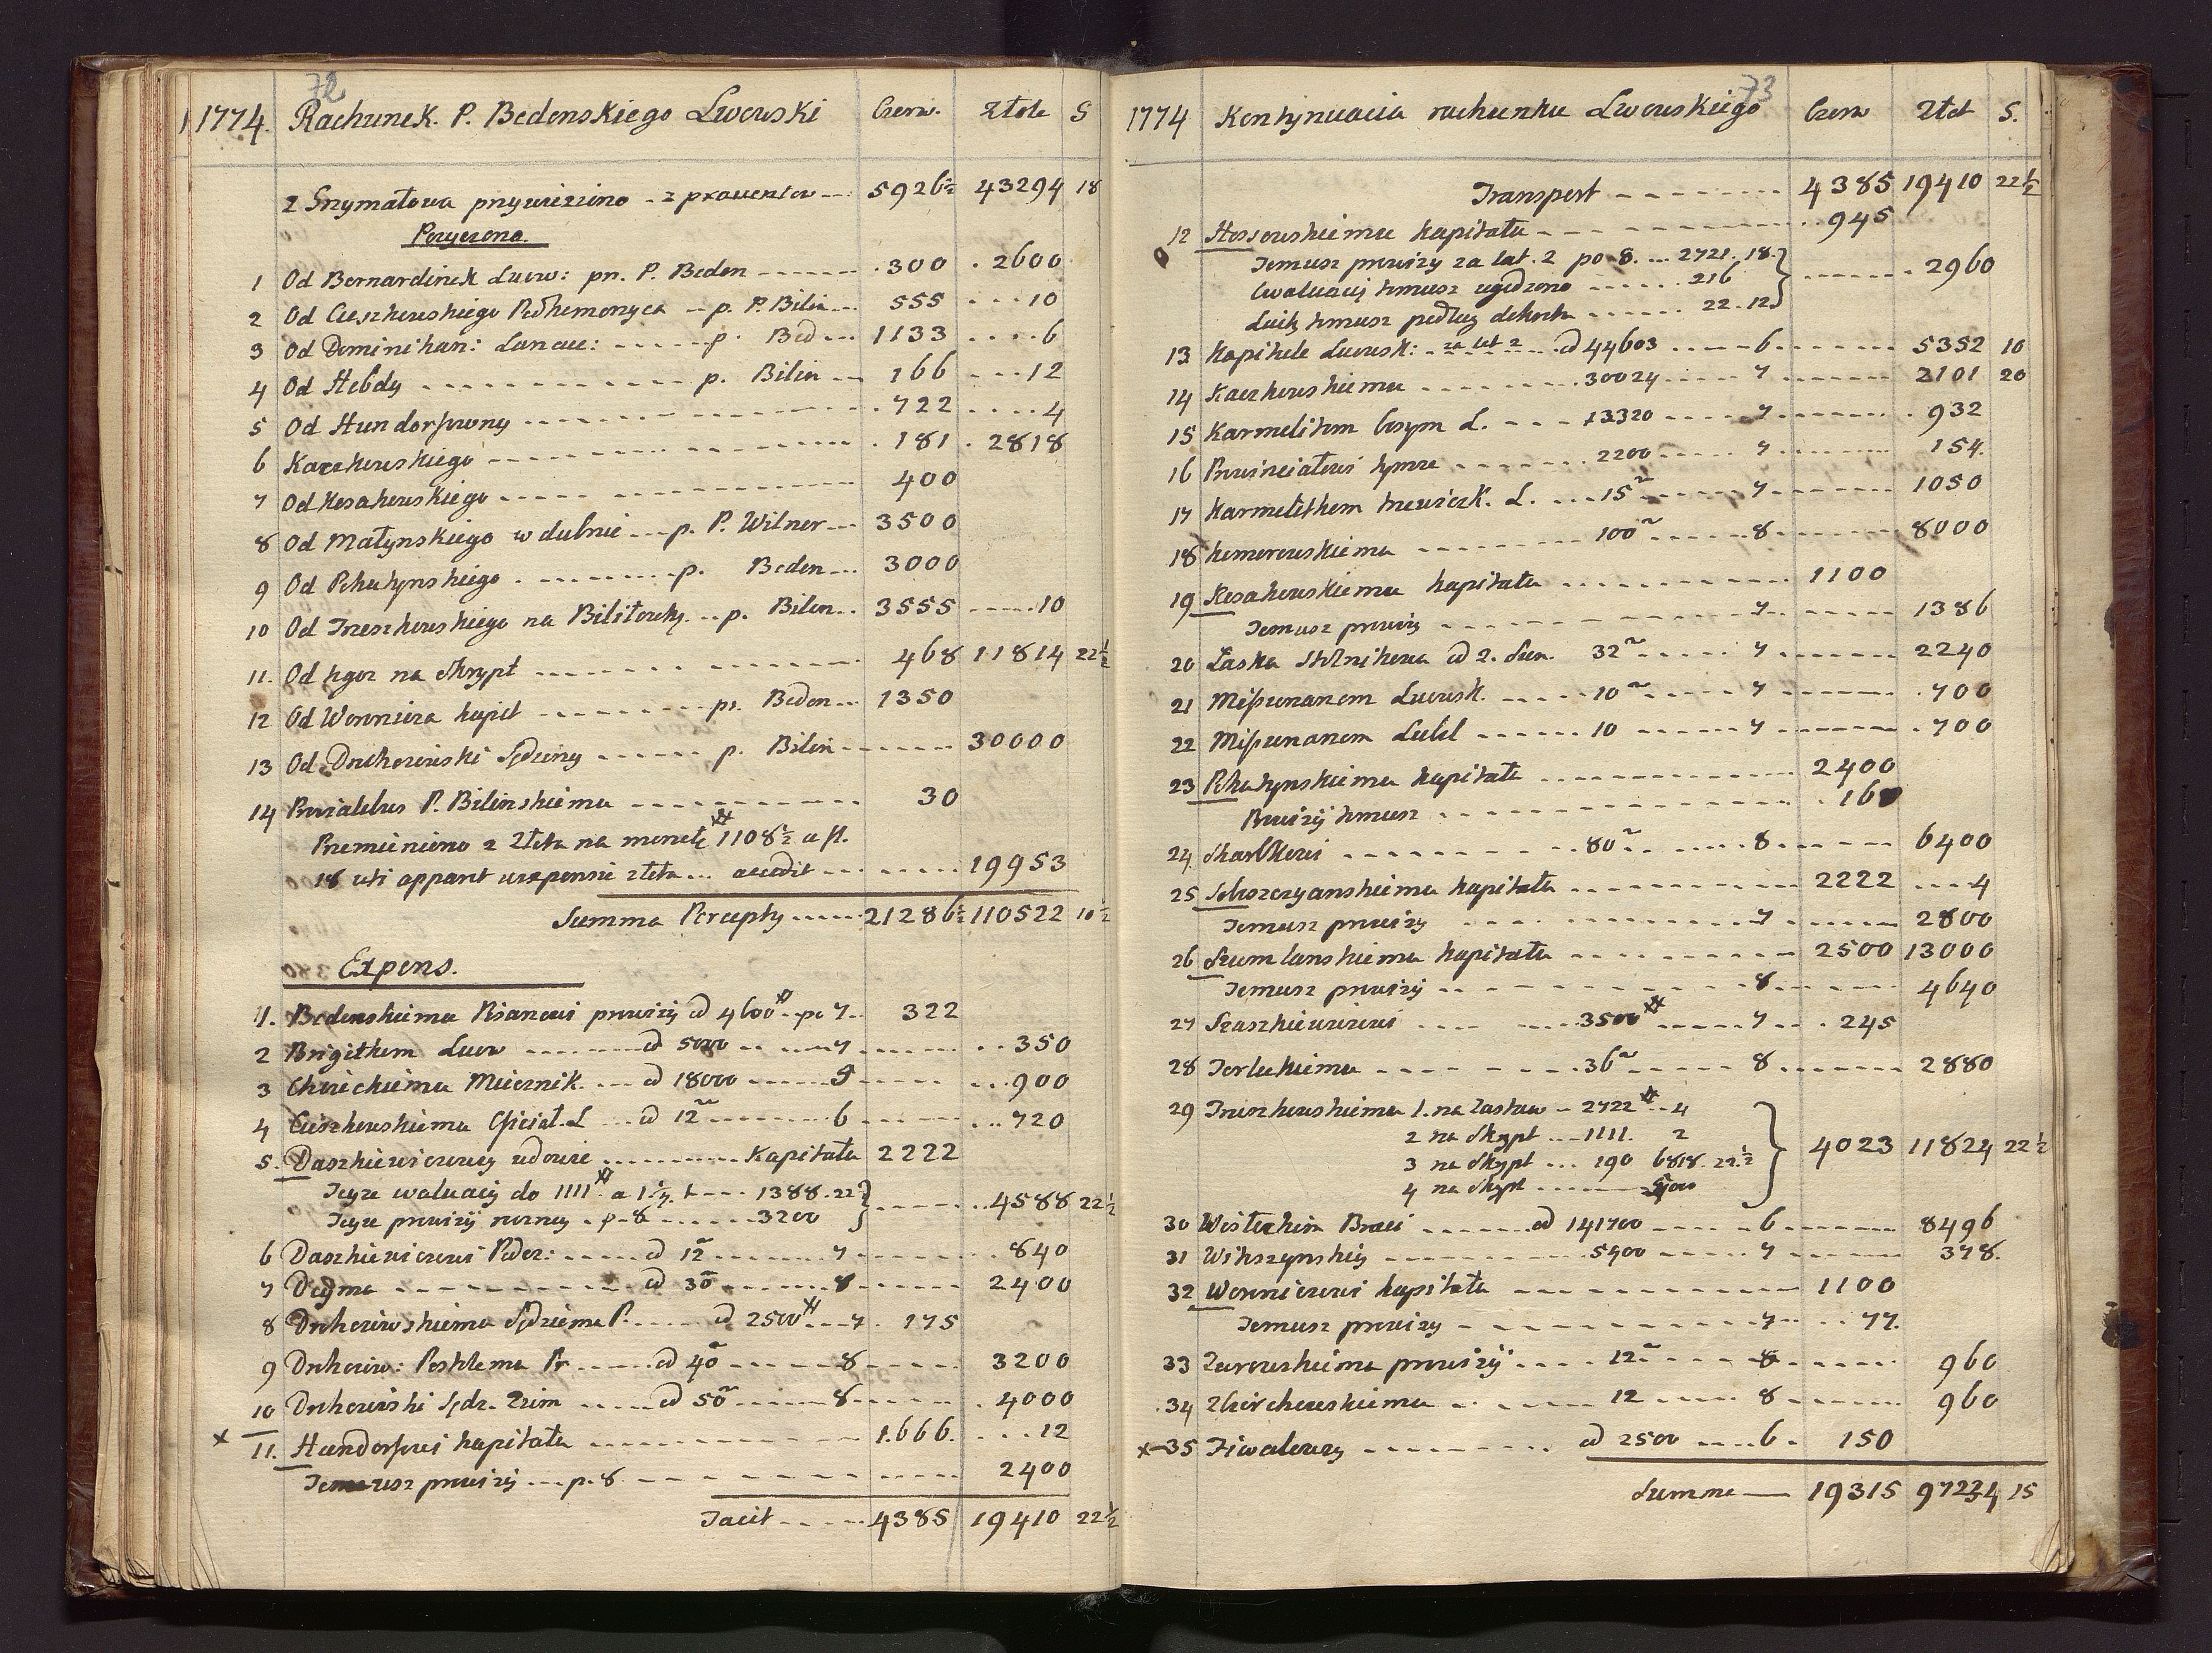 72
1774. Rachunek P. Bedonskiego Lwowski Czerw. Złote S
z Snymałowa przywieziono - z prowentow --- 5926½ 43294 18
Pozyczono.
1 Od Bernardinek Lwow: pr. P. Bedon ------ 300 . 2600
2 Od Cieszkowskiego Podkomorzyca -- p. P. Bilin -- 555 ... 10
3 Od Dominikan: Lancu: ------ p. Bed --- 1133 .... 6
4 Od Hebdy ------------ p. Bilin -- 166 ... 12
5 Od Hundorfowny ------------ 722 .... 4
6 Kaczkowskiego ------------ 181 . 2818
7 Od Kosakowskiego ------------ 400
8 Od Małynskiego w dubnie --- p. P. Wilner --- 3500
9 Od Pohatynskiego . ------ p. Bedon --- 3000
10 Od Treszkowskiego na Biliłowkę .. p. Bilin .. 3555 ----- 10
11. Od tegoz na Skrypt ------------ 468 11814 22½
12 Od Woronicza kapit -------- pr. Bedon -- 1350
13 Od Drohoiewski Sędziny ------ p. Bilin ------ 30000
14 Provialibus P. Bilinskiemu ------------ 30
Przemieniono z Złota na monetę 1108½ a fl.
18 uti apparet w expensie złota ... accedit ------- 19953
Summa Percepty ----- 21286½ 110522 10½
Expens.
1. Bedonskiemu Pisarzowi prowizij od 4600 -- po 7 -- 322
2 Brigitkom Lwow ------ od 5000 -- -- 7 ------ 350
3 Choieckiemu Miecznik. --- od 18000 ----- 5 ------ 900
4 Cieszkowskiemu Oficiał. L --- od 12 ------ 6 ------ 720
5. Daszkiewiczowey wdowie ---------- Kapitału 2222
Teyze waluacij do 1111 a 1 ¼ --- 1388 . 22½
Teyze prowizij rocznej . p- 8 ------ 3200 ------ 4588 22½
6 Daszkiewiczowi Podcz: ------ od 12 ------ 7 ------ 840
7 Degma ------------ od 30 ------ 8 ------ 2400
8 Drohoiewskiemu Sędziemu P. ----- od 2500 --- 7 . 175
9 Drohoiew: Poskłemu Pr ------ od 40 ------ 8 ------ 3200
10 Drohoiewski Sędz. Ziem ----- od 50 ------ 8 ------ 4000
x 11. Hundorfowi kapitału ------------ 1.666. ... 12
Temuz prowizij --- p. 8 ------------ 2400
Facit ----- 4385 19410 22½
73
1774 Kontynuacia rachunku Lwowskiego Czerw Złot S.
Transport -------- 4385 19410 22½
12 Hossowskiemu kapitału ------------ 945
Temusz prowizy za lat . 2 po 8. ... 2721. 18.
Ewaluacij temusz ugodzono ------ 216
Luitz temusz podług dekretu ------ 22. 12 ------ 2960
13 Kapitule Lwowsk: za lat 2 od 44603 ----- 6 ------ 5352 10
14 Kaczkowskiemu -------- 30024 ----- 7 ------ 2101 20
15 Karmelitom bosym L. --- 13320 ---- 7 ------ 932
16 Prowincialowi tymze -------- 2200 ----- 7 ------ 154.
17 Karmelitkom trzewiczk. L. --- 15 ------ 7 ------ 1050
18 Komorowskiemu ---------- 100 ----- 8 ------ 8000
19 Kosakowskiemu kapitału ------------ 1100
Temusz prowizy ------------ 7 ------ 1386
20 Łaska Stolnikowa od 2. Sum. 32 ----- 7 ------ 2240
21 Missionarzom Lwowsk. ---- 10 ------ 7 ------ 700
22 Missionarzom Lubel ------ 10 ----- 7 ------ 700
23 Rohatynskiemu kapitału ------------ 2400
Prowizij temusz ------------ 168
24. Skarbkowi ---------- 80 ------ 8 ------ 6400
25 Soboszczyanskiemu kapitału ------------ 2222 ---- 4
Temusz prowizy ---------- 7 ------ 2800
26 Szumlanskiemu kapitału ---------- 2500 13000
Temusz prowizij ---------- 8 ------ 4640
27 Staszkiewiczowi ------ 3500 ------ 7 -- . 245
28 Terleckiemu ---------- 36 ------ 8. ------ 2880
29 Treszkowskiemu 1. na zastaw - 2722 -- 4
2 na Skrypt --- 1111. 2
3 na Skrypt --- 190 6818. 22½
4 na Skrypt -------- 5000
4023 11824 22½
30 Wisłockim Braci ------ od 141700 ---- 6 ------ 8496
31 Wikszynskiej ---------- 5400 ---- 7 ------ 378.
32 Woroniczowi kapitału ------------ 1100
Temusz prowizy ------------ 7 -- .. 77.
33 Zurowskiemu prowizij ---- 12 ------ 8 ------ 960
34 Zboirchowskiemu -------- 12 ----- 8 ------ 960
x-35 Ziwalowy ---------- od 2500 ---- 6 . 150
Summa ---- 19315 97234 15